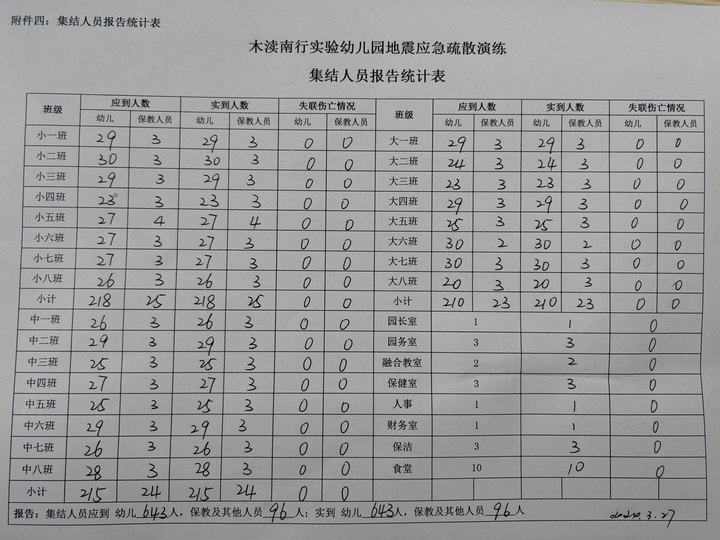 附件四：集结人员报告统计表
木渎南行实验幼儿园地震应急疏散演练
集结人员报告统计表
班级 应到人数 实到人数 失联伤亡情况 班级 应到人数 实到人数 失联伤亡情况
幼儿 保教人员 幼儿 保教人员 幼儿 保教人员 幼儿 保教人员 幼儿 保教人员 幼儿 保教人员
小一班 29 3 29 3 0 0 大一班 29 3 29 3 0 0
小二班 30 3 30 3 0 0 大二班 24 3 24 3 0 0
小三班 29 3 29 3 0 0 大三班 23 3 23 3 0 0
小四班 23 3 23 3 0 0 大四班 29 3 29 3 0 0
小五班 27 4 27 4 0 0 大五班 25 3 25 3 0 0
小六班 27 3 27 3 0 0 大六班 30 2 30 2 0 0
小七班 27 3 27 3 0 0 大七班 30 3 30 3 0 0
小八班 26 3 26 3 0 0 大八班 20 3 20 3 0 0
小计 218 25 218 25 0 0 小计 210 23 210 23 0 0
中一班 26 3 26 3 0 0 园长室 1 1 0
中二班 29 3 29 3 0 0 园务室 3 3 0
中三班 25 3 25 3 0 0 融合教室 2 2 0
中四班 27 3 27 3 0 0 保健室 3 3 0
中五班 25 3 25 3 0 0 人事 1 1 0
中六班 29 3 29 3 0 0 财务室 1 1 0
中七班 26 3 26 3 0 0 保洁 3 3 0
中八班 28 3 28 3 0 0 食堂 10 10 0
小计 215 24 215 24 0 0
报告：集结人员应到 幼儿 643人，保教及其他人员 96 人；实到 幼儿 643人，保教及其他人员 96 人 3.27